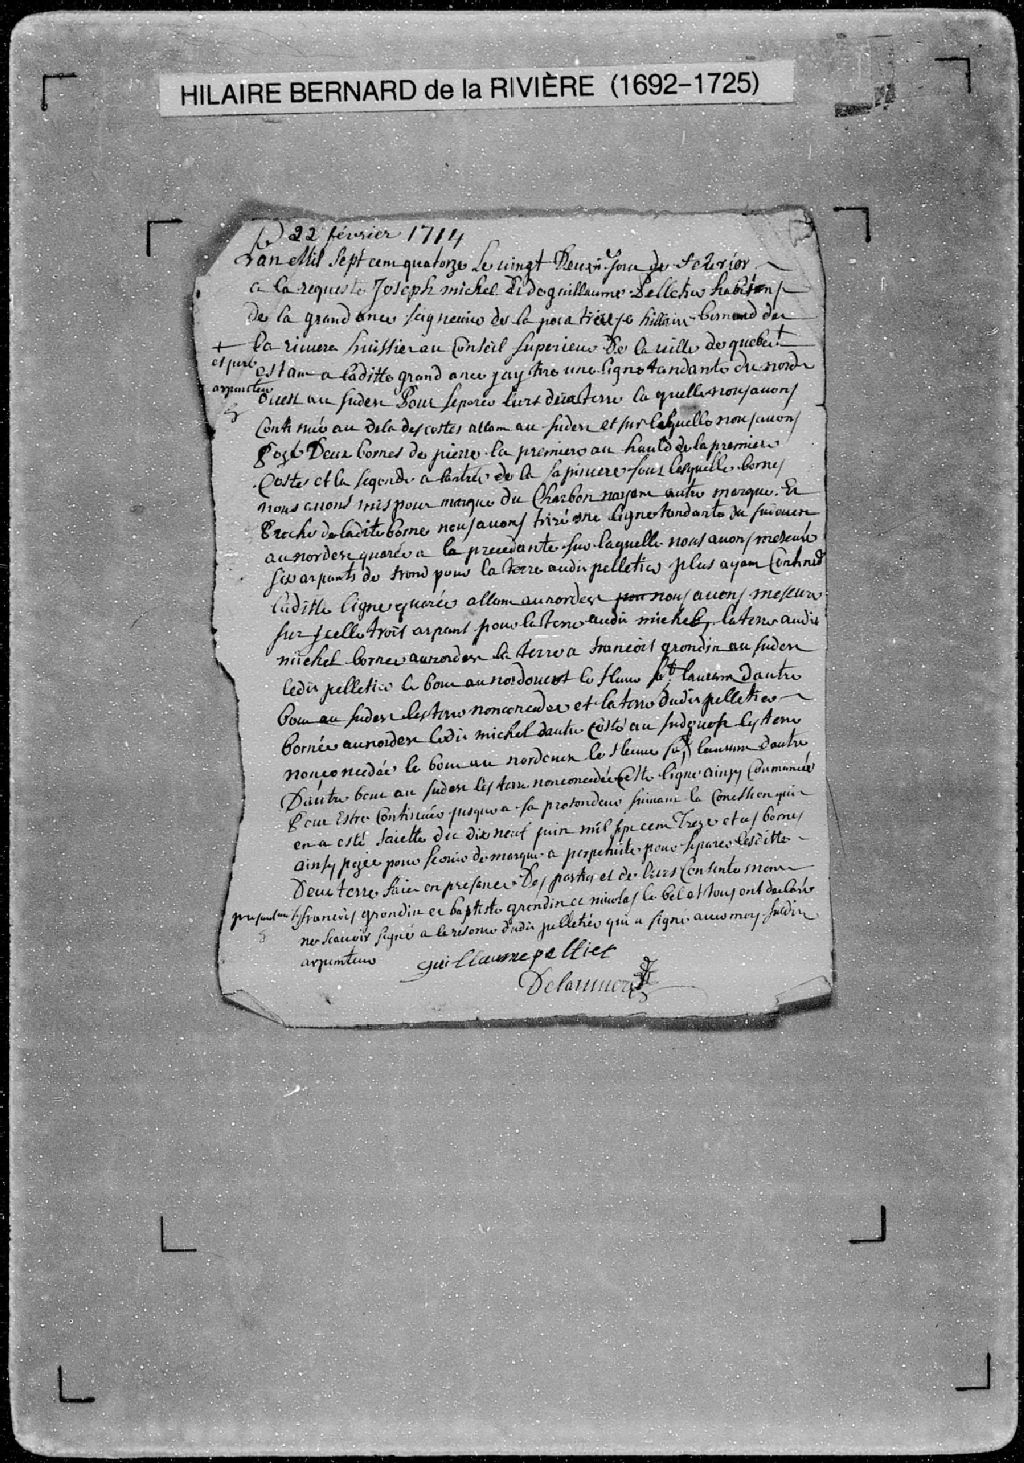 HILAIRE BERNARD de la RIVIÈRE (1692-1725)
22 février 1714
Lan Mil Sept cem quatorze Le vingt Deuxm Jour de
a la requeste Joseph michel Et de guillaume Pelletier habitans
de la grand ance seigneurie de la hillaire bernard de
la riviere huissier au Conseil superieur De la ville de quebec +
+ et juré
arpenteur
estam a laditte grand ance jay tiré une ligne tandante du nord
ouest au sudest Pour separer leurs deux terre la quelle nous avons
Continuée au dela des costes allam au sudest et sur laquelle nous avons
Pozé Deux bornes de pierre la premiere au hault de la premiere
Costes et la segonde a lantrée de la sapiniere sous lesquelle bornes
nous avons mis pour marque du Charbon nayam autre marque Et
Proche de ladite borne nous avons tiré une ligne tandante du surouest
au nordest quarée a la precedante sur laquelle nous avons mesuré
six arpants de front pour la terre audit pelletier plus ayam Continué
laditte ligne quarée allam au nordest nous avons mesuré
sur jcelle trois arpans pour la terre audit michel la terre audit
michel bornée au nordest la terre a francois grondin au sudest
ledit pelletier le bout au nordouest le fleuve st laurem dautre
bout au sudest les terre nonconcedée et la terre dudit pelletier
bornée au nordest ledit michel dautre Costé au surouest les terre
nonconcedée le bout au nordouest le fleuve st laurem dautre
Dautre bout au sudest les terre nonconcedée Cette ligne ainsy Commancée
Pour Estre Continuée jusqua sa profondeur suivam la Concession qui
en a esté faicte du dix neuf juin mil sept cem Treze et ces bornes
ainsy pozée pour servir de marque a perpetuité pour separer lesditte
Deux terre faict en presance Des partys et de leurs Consentement
presance francois grondin et baptiste grondin et nicolas le bel et tous ont declaré
ne scavoir signé a la reserve dudit pelletier qui a signé avec moy
arpenteur
guillaume pelletier
Delariviere